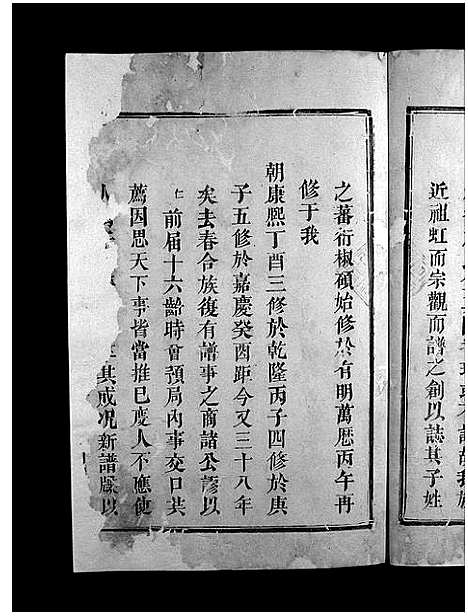 近祖虹而宗觀而譜之創以誌其子姓
之蕃衍椒碩始修於有明萬曆丙午再
修于我
朝康熙丁酉三修於乾隆丙子四修於庚
子五修於嘉慶癸酉距今又三十八年
矣去春合族復有譜事之商諸公謬以
仁前届十六齡時曾預局內事交口共
薦因思天下事皆當推已度人不應使
其戒况新譜牒以